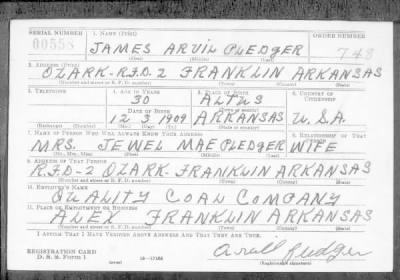 SERIAL NUMBER 1. NAME (Print) ORDER NUMBER
00558 JAMES ARVIL PLEDGER 748
(First) (Middle) (Last)
2. ADDRESS (Print)
OZARK-R.F.D-2 FRANKLIN ARKANSAS
(Number and street or R. F. D. number) (Town) (County) (State)
3. TELEPHONE 4. AGE IN YEARS 5. PLACE OF BIRTH 6. COUNTRY OF CITIZENSHIP
30 ALTUS
DATE OF BIRTH (Town or county)
12 3 1909 ARKANSAS U.S.A.
(Exchange) (Number) (Mo.) (Day) (Yr.) (State or country)
7. NAME OF PERSON WHO WILL ALWAYS KNOW YOUR ADDRESS 8. RELATIONSHIP OF THAT PERSON
MRS. JEWEL MAE PLEDGER WIFE
(Mr., Mrs., Miss) (First) (Middle) (Last)
9. ADDRESS OF THAT PERSON
R.F.D-2 OZARK FRANKLIN ARKANSAS
(Number and street or R. F. D. number) (Town) (County) (State)
10. EMPLOYER'S NAME
QUALITY COAL COMPANY
11. PLACE OF EMPLOYMENT OR BUSINESS
ALEX FRANKLIN ARKANSAS
(Number and street or R. F. D. number) (Town) (County) (State)
I AFFIRM THAT I HAVE VERIFIED ABOVE ANSWERS AND THAT THEY ARE TRUE.
REGISTRATION CARD
D. S. S. Form 1 (over) 16—17105 (Registrant's signature)
Pledger